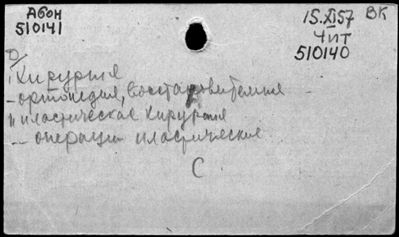 Абон
510141
15.XI57 ВК
Чит
510140
Хирургия
– ортопедия, восстановительная
и пластическая хирургия
– операции пластические
С